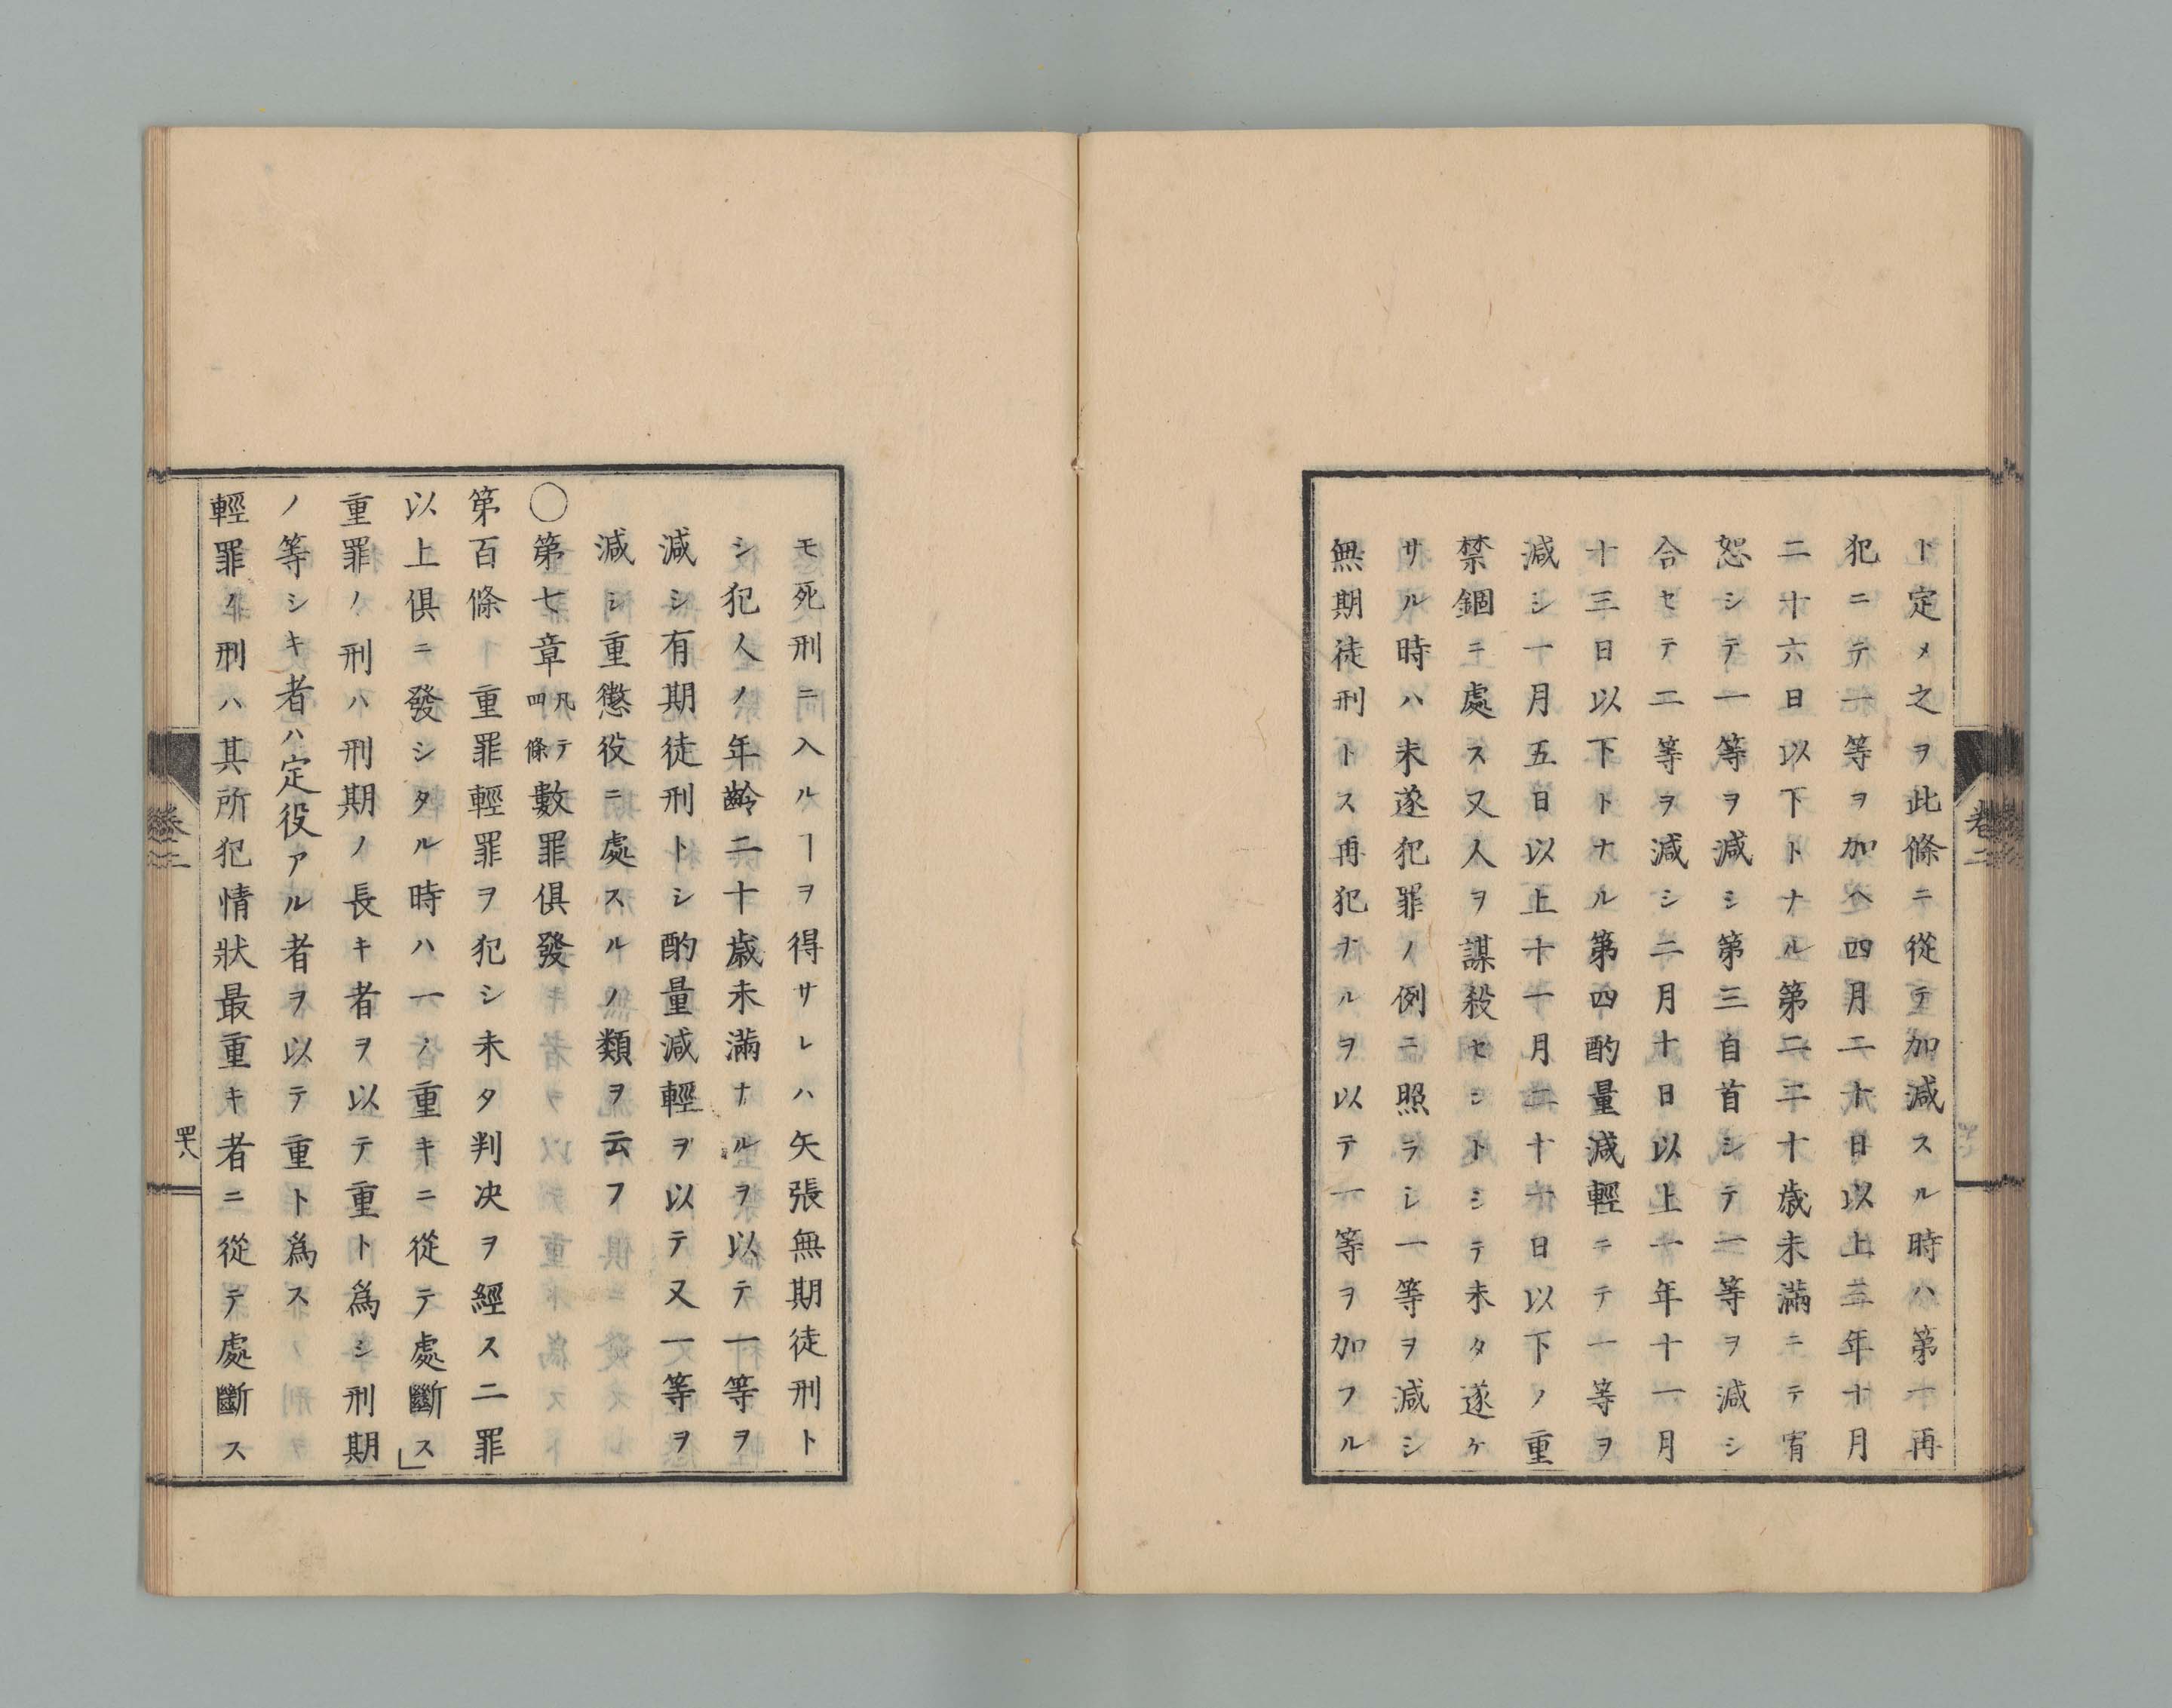 ト定メ之ヲ此條ニ從テ加減スル時ハ第一再
犯ニテ一等ヲ加ヘ四月二十日以上三年十月
二十六日以下トナル第二二十歳未滿ニテ宥
恕シテ一等ヲ減シ第三自首シテ一等ヲ減シ
合セテ二等ヲ減シ二月十日以上一年十一月
十三日以下トナル第四酌量減輕ニテ一等ヲ
減シ一月五日以上十一月二十一日以下ノ重
禁錮ニ處ス又人ヲ謀殺セシトシテ未タ遂ケ
サル時ハ未遂犯罪ノ例ニ照ラシ一等ヲ減シ
無期徒刑トス再犯ナルヲ以テ一等ヲ加フル
卷二
モ死刑ニ入ルヿヲ得サレハ矢張無期徒刑ト
シ犯人ノ年齡二十歳未滿ナルヲ以テ一等ヲ
減シ有期徒刑トシ酌量減輕ヲ以テ又一等ヲ
減シ重懲役ニ處スルノ類ヲ云フ
〇第七章凡テ四條數罪俱發
第百條 重罪輕罪ヲ犯シ未タ判決ヲ經ス二罪
以上俱ニ發シタル時ハ一ノ重キニ從テ處斷ス」
重罪ノ刑ハ刑期ノ長キ者ヲ以テ重ト爲シ刑期
ノ等シキ者ハ定役アル者ヲ以テ重ト爲ス
輕罪ノ刑ハ其所犯情狀最重キ者ニ從テ處斷ス
卷二
四十八